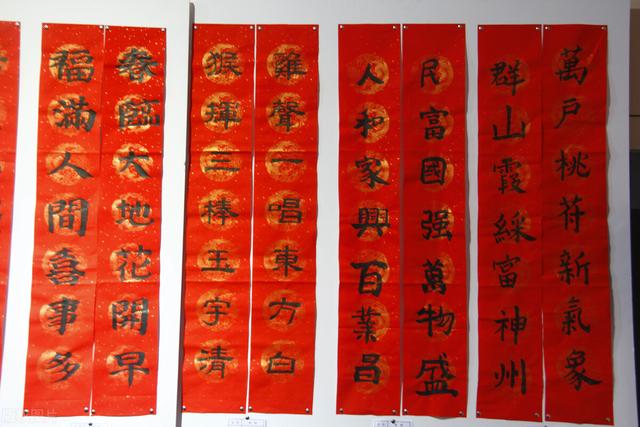 萬戶桃苻新氣象
群山霞綵富神州
民富國强萬物盛
人和家興百業昌
雞聲一唱東方白
猴揮三棒玉宇清
春臨大地花開早
福滿人間喜事多